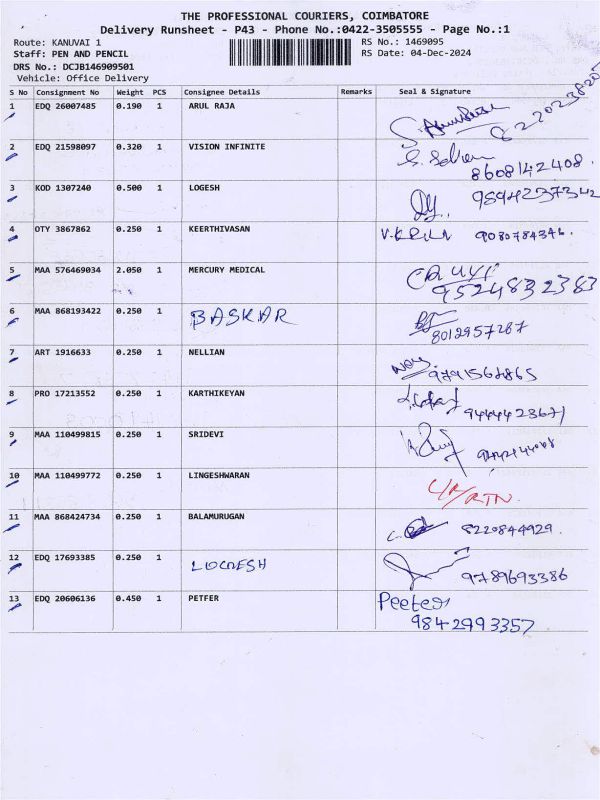 THE PROFESSIONAL COURIERS, COIMBATORE
Delivery Runsheet - P43 - Phone No.:0422-3505555 - Page No.:1
Route: KANUVAI 1 RS No.: 1469095
Staff: PEN AND PENCIL RS Date: 04-Dec-2024
DRS No.: DCJB146909501
Vehicle: Office Delivery
S No Consignment No Weight PCS Consignee Details Remarks Seal & Signature
1 EDQ 26007485 0.190 1 ARUL RAJA
2 EDQ 21598097 0.320 1 VISION INFINITE
8608142408.
3 KOD 1307240 0.500 1 LOGESH
95942237342
4 OTY 3867862 0.250 1 KEERTHIVASAN 9080784346.
5 MAA 576469034 2.050 1 MERCURY MEDICAL
9524832383
6 MAA 868193422 0.250 1 BASKAR
8012957267
7 ART 1916633 0.250 1 NELLIAN
9791562865
8 PRO 17213552 0.250 1 KARTHIKEYAN
9444423671
9 MAA 110499815 0.250 1 SRIDEVI
10 MAA 110499772 0.250 1 LINGESHWARAN
RTN.
11 MAA 868424734 0.250 1 BALAMURUGAN
8220844929.
12 EDQ 17693385 0.250 1 LOGESH
9789693386
13 EDQ 20606136 0.450 1 PETFER Peeter
9842993357